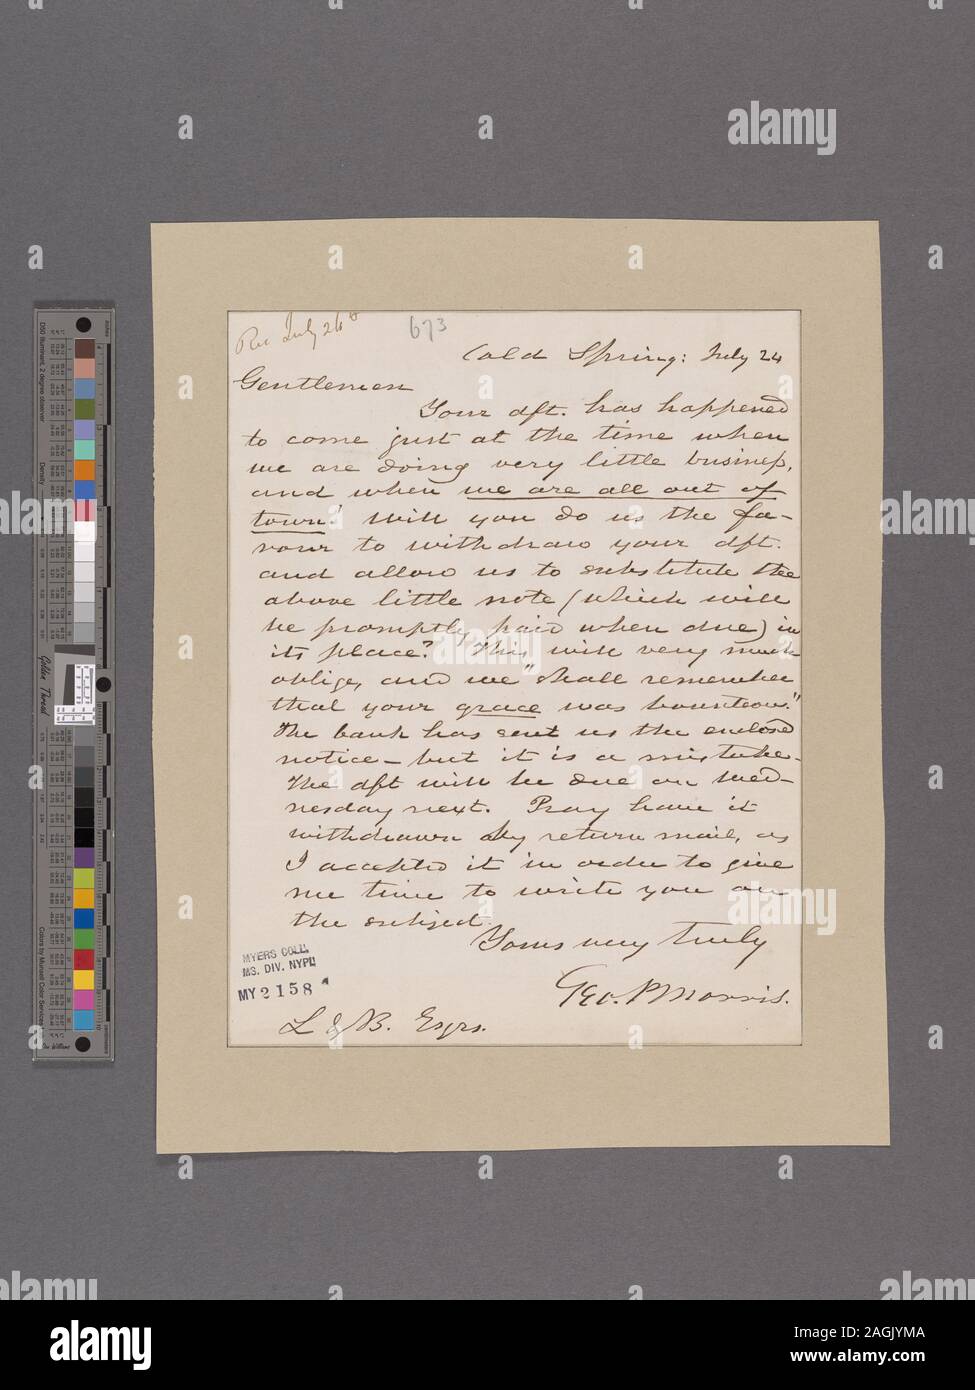 Rec July 26th
673
Cold Spring: July 24
Gentlemen
Your dft. has happened
to come just at the time when
we are doing very little business,
and when we are all out of
town! Will you do us the fa-
vour to withdraw your dft.
and allow us to substitute the
above little note (which will
be promptly paid when due) in
its place? This will very much
oblige, and we "shall remember
that your grace was bounteous."
The bank has sent us the enclosed
notice - but it is a mistake.
The dft will be due on Wed-
nesday next. Pray have it
withdrawn by return mail, as
I accepted it in order to give
me time to write you on
the subject.
Yours very truly
Geo. P Morris.
L & B. Esqrs.
MYERS COLL.
MS. DIV. NYPL
MY 2158
D50 Illuminant, 2 degree observer
Density
Golden Thread
Colors by Munsell Color Services
alamy
alamy
Image ID: 2AGJYMA
www.alamy.com